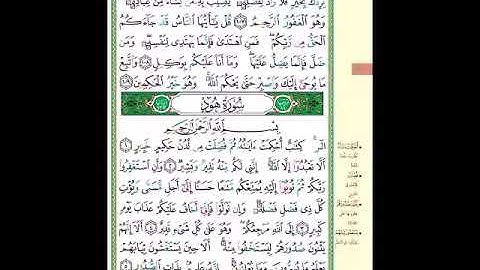 يُرِدْكَ بِخَيْرٍ فَلَا رَادَّ لِفَضْلِهِ يُصِيبُ بِهِ مَن يَشَاءُ مِنْ عِبَادِهِ
وَهُوَ الْغَفُورُ الرَّحِيمُ ١٠٧ قُلْ يَا أَيُّهَا النَّاسُ قَدْ جَاءَكُمُ
الْحَقُّ مِن رَّبِّكُمْ فَمَنِ اهْتَدَىٰ فَإِنَّمَا يَهْتَدِي لِنَفْسِهِ وَمَن
ضَلَّ فَإِنَّمَا يَضِلُّ عَلَيْهَا وَمَا أَنَا عَلَيْكُم بِوَكِيلٍ ١٠٨ وَاتَّبِعْ
مَا يُوحَىٰ إِلَيْكَ وَاصْبِرْ حَتَّىٰ يَحْكُمَ اللَّهُ وَهُوَ خَيْرُ الْحَاكِمِينَ ١٠٩
سُورَةُ هُودٍ
بِسْمِ اللَّهِ الرَّحْمَٰنِ الرَّحِيمِ
الر كِتَابٌ أُحْكِمَتْ آيَاتُهُ ثُمَّ فُصِّلَتْ مِن لَّدُنْ حَكِيمٍ خَبِيرٍ ١
أَلَّا تَعْبُدُوا إِلَّا اللَّهَ إِنَّنِي لَكُم مِّنْهُ نَذِيرٌ وَبَشِيرٌ ٢ وَأَنِ اسْتَغْفِرُوا
رَبَّكُمْ ثُمَّ تُوبُوا إِلَيْهِ يُمَتِّعْكُم مَّتَاعًا حَسَنًا إِلَىٰ أَجَلٍ مُّسَمًّى وَيُؤْتِ
كُلَّ ذِي فَضْلٍ فَضْلَهُ وَإِن تَوَلَّوْا فَإِنِّي أَخَافُ عَلَيْكُمْ عَذَابَ يَوْمٍ
كَبِيرٍ ٣ إِلَى اللَّهِ مَرْجِعُكُمْ وَهُوَ عَلَىٰ كُلِّ شَيْءٍ قَدِيرٌ ٤ أَلَا إِنَّهُمْ
يَثْنُونَ صُدُورَهُمْ لِيَسْتَخْفُوا مِنْهُ أَلَا حِينَ يَسْتَغْشُونَ ثِيَابَهُمْ
يَعْلَمُ مَا يُسِرُّونَ وَمَا يُعْلِنُونَ إِنَّهُ عَلِيمٌ بِذَاتِ الصُّدُورِ ٥